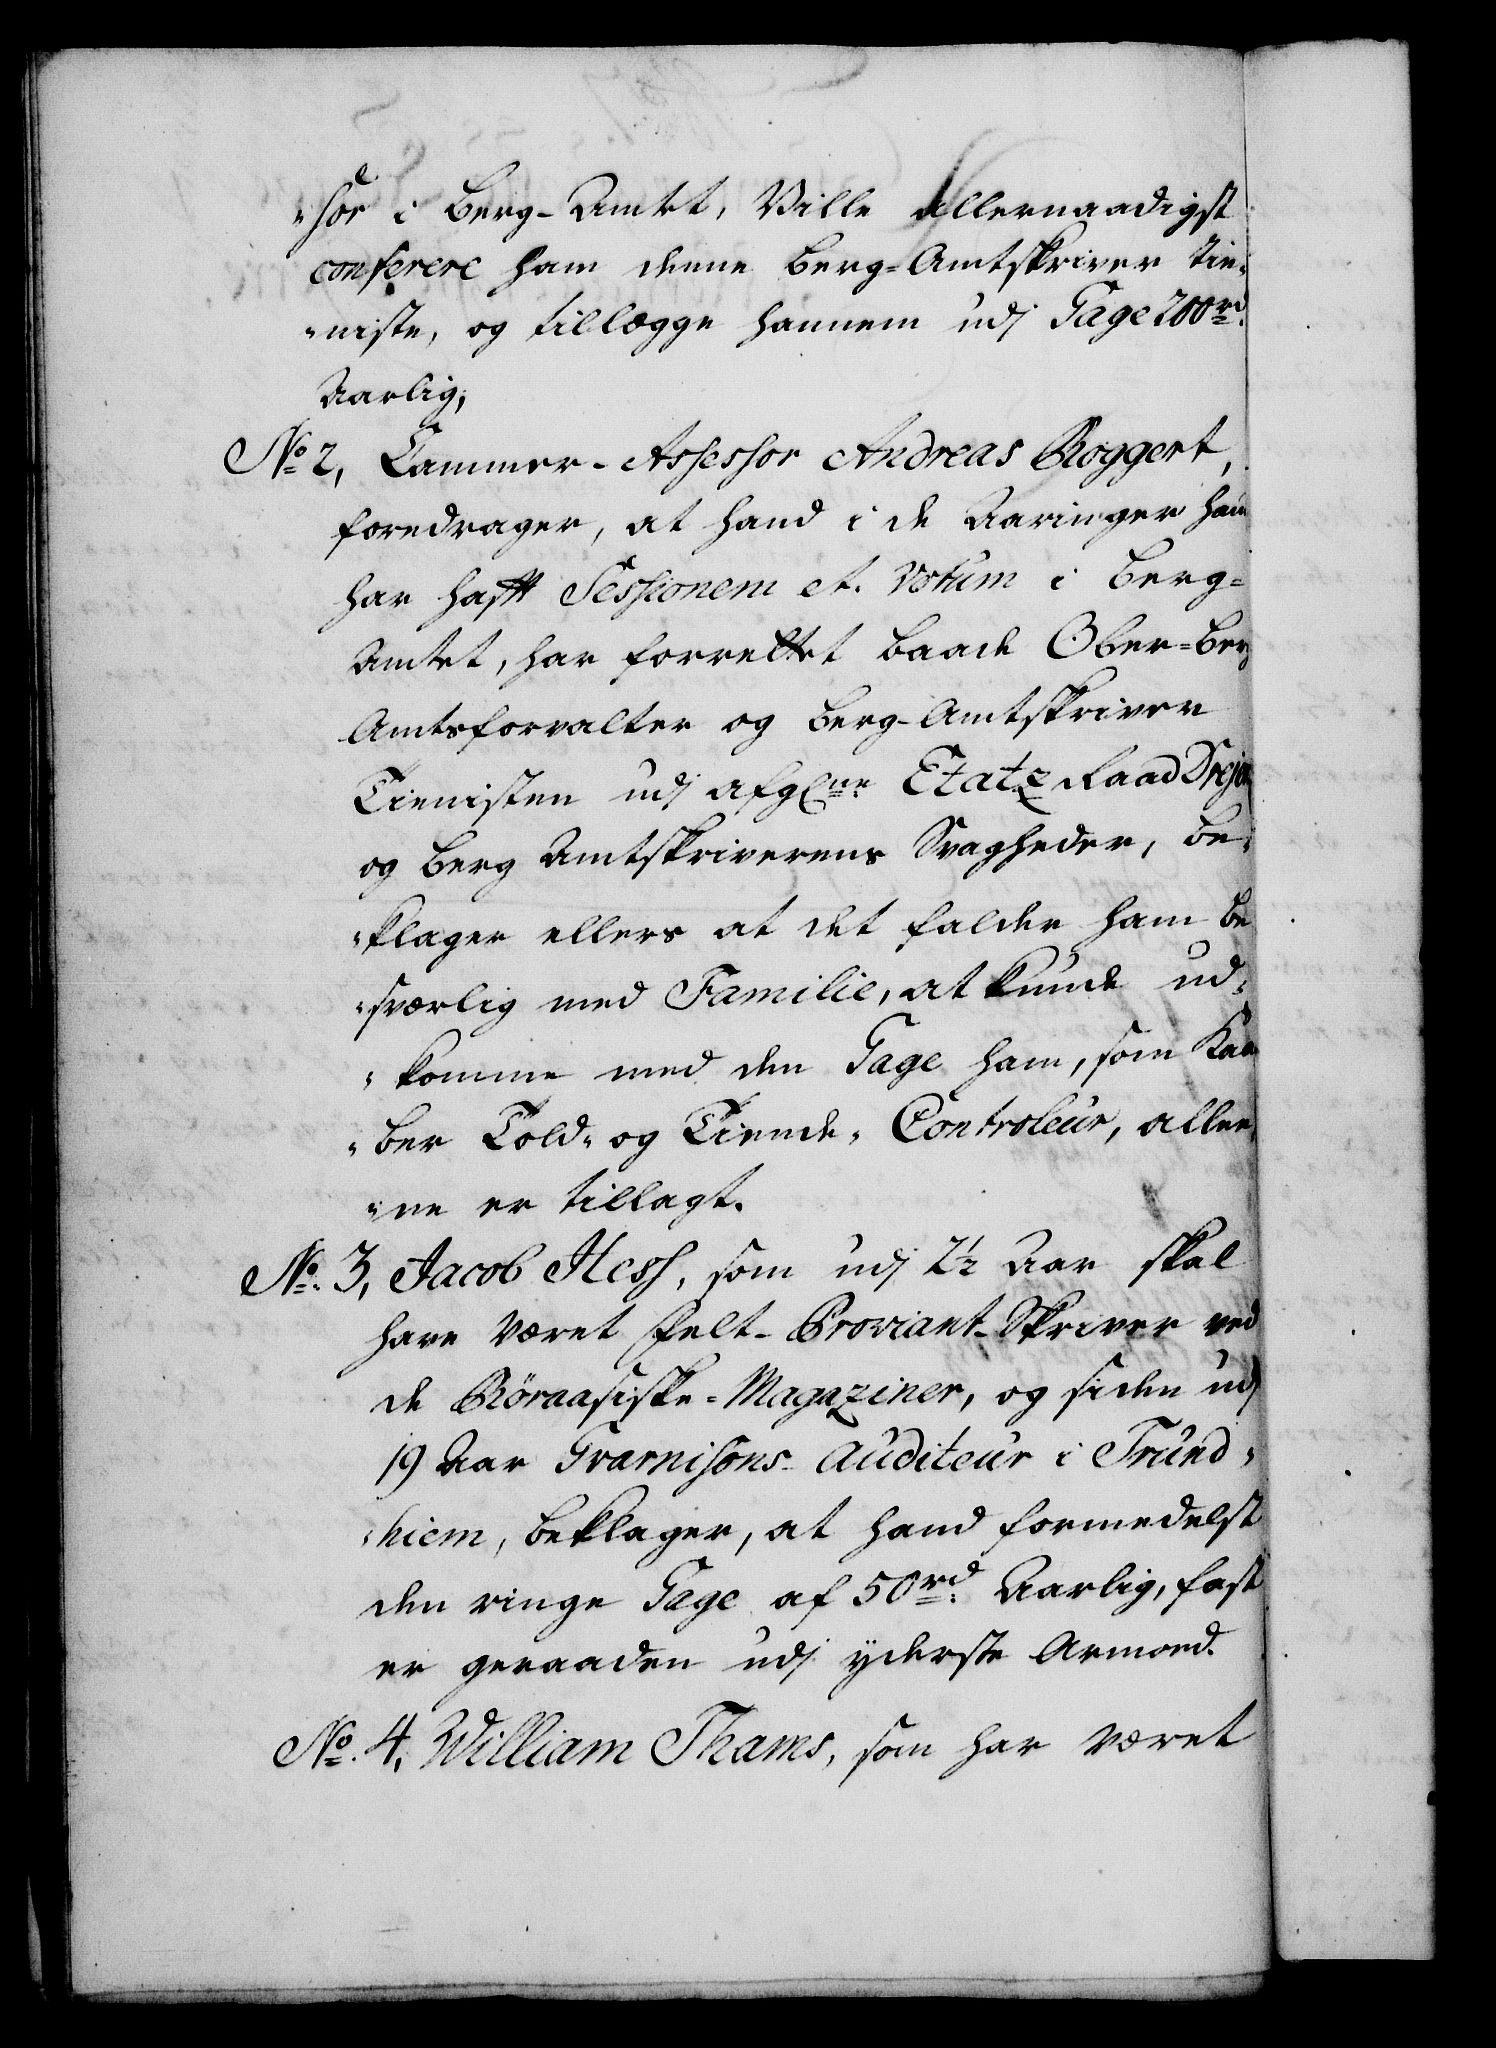 "sor i Berg-Amtet, Ville allernaadigst
conferere ham denne Berg-Amtskriver Tie„
„niste, og tillægge hannem udj Gage 200 rd.
Aarlig;
No. 2, Cammer-Assessor Andreas Roggert,
foredrager, at hand i de Aaringer han
har hafft Sessionem et Votum i Berg-
Amtet, har forrettet baade Ober-Berg
Amtsforvalter og Berg-Amtskriver
Tienisten udj afgl. Etatz Raad
og Berg Amtskriverens Svagheder, be„
„klager ellers at det falder ham be
„sværlig med Familie, at kunde ud„
„komme med den Gage ham, som Kaa
„ber Told- og Tiende-Controleur, allee„
„ne er tillagt.
No. 3, Jacob Hess, som udj 2½ Aar skal
have været Felt-Proviant-Skriver ved
de Röraasiske-Magaziner, og siden udj
19 Aar Guarnisons-Auditeur i Trund„
„hiem, beklager, at hand formedelst
den ringe Gage af 50 rd. Aarlig, fast
er geraaden udj yderste Armoed.
No. 4, William Thams, som har været